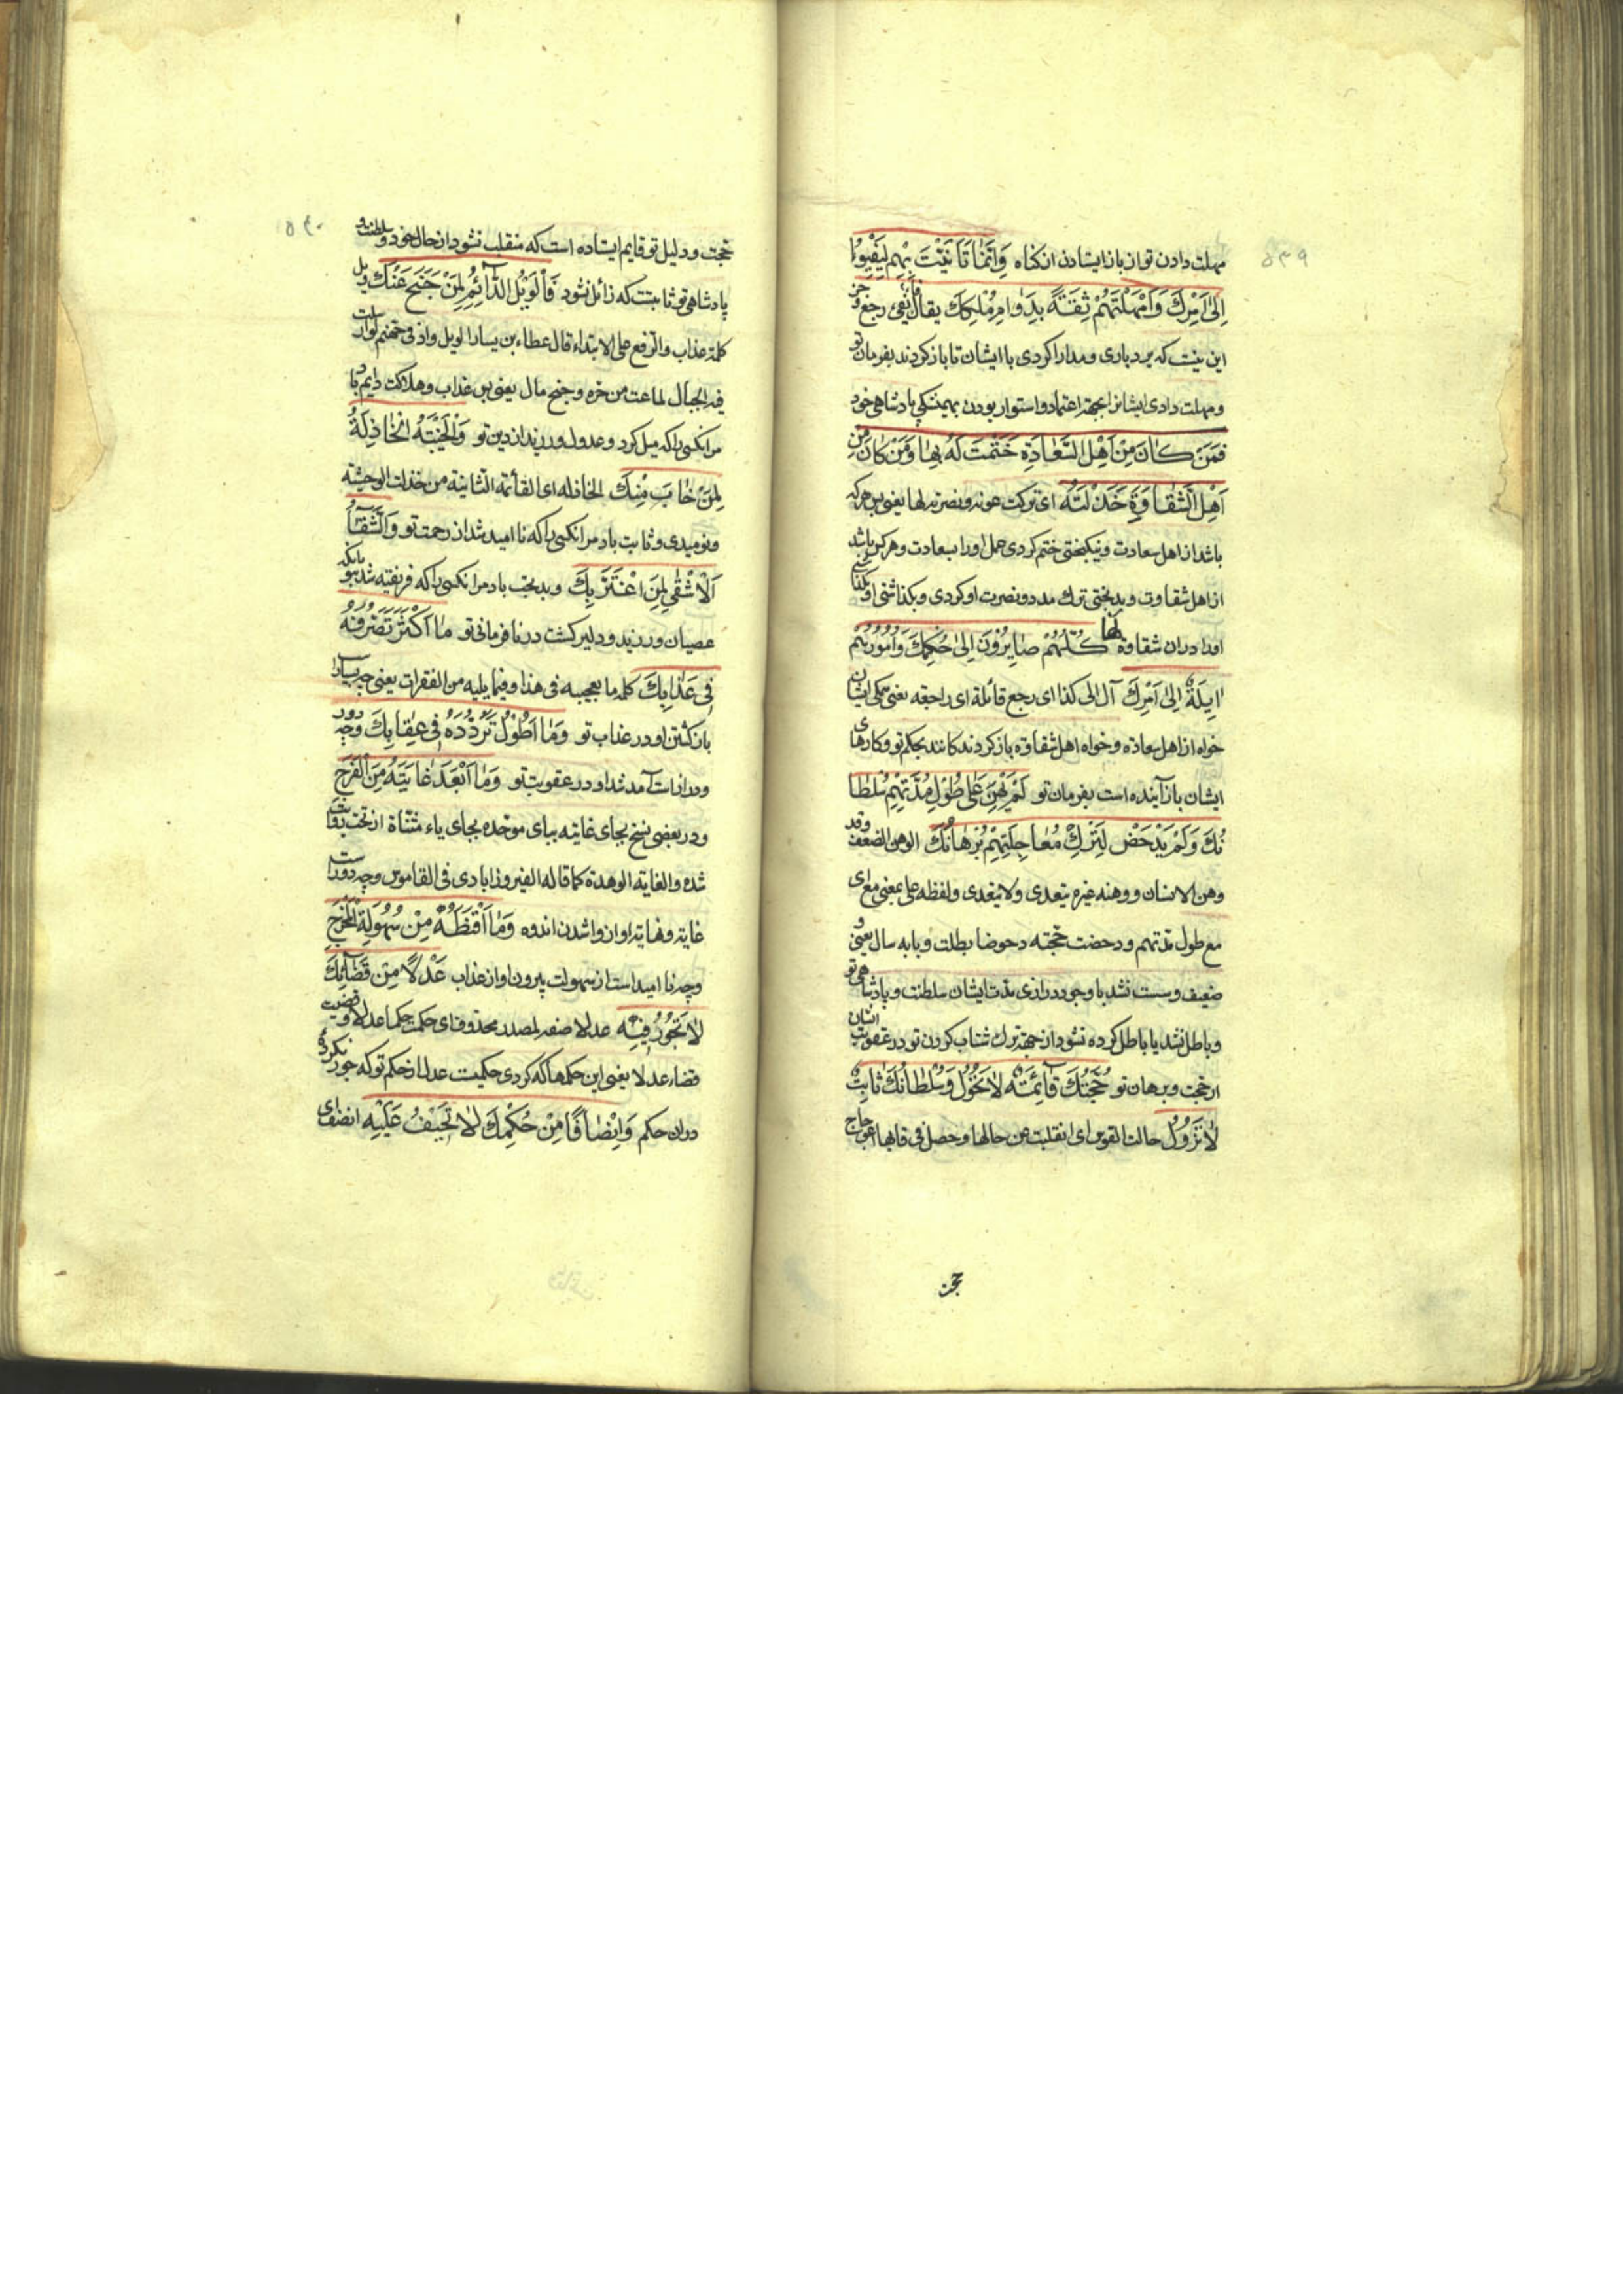 ۵۳۹
مهلت دادن تو از باز ایستادن از گناه وَاِنَّمٰا تَاَنَّیْتَ بِهِمْ لِیَفِیْؤُا
اِلٰی اَمْرِكَ وَاَمْهَلْتَهُمْ ثِقَةً بِدَوٰامِ مُلْكِكَ یقال فاء یفئ رجع و
این نیست که بردباری و مدارا کردی با ایشان تا باز گردند بفرمان تو
و مهلت دادی ایشانرا بجهة اعتماد و استوار بودن بهمیشگی پادشاهی خود
فَمَنْ كٰانَ مِنْ اَهْلِ السَّعٰادَةِ خَتَمْتَ لَهُ بِهٰا وَمَنْ كٰانَ مِنْ
اَهْلِ الشَّقٰاوَةِ خَذَلْتَهُ لَهٰا ای ترکت عونه و نصرته لها یعنی پس هر که
باشد از اهل سعادت و نیکبختی ختم کردی عمل او را بسعادت و هر کس باشد
از اهل شقاوت و بدبختی ترك مدد و نصرت او کردی و بگذاشتی او
او را در ان شقاوة كُلُّهُمْ صٰایِرُوْنَ اِلٰی حُكْمِكَ وَاُمُوْرُهُمْ
اٰیِلَةٌ اِلٰی اَمْرِكَ آل الی کذا ای رجع فآئلة ای راجعه یعنی همگی ایشان
خواه از اهل سعادة و خواه اهل شقاوة باز گردندگانند بحکم تو و کارهای
ایشان باز آینده است بفرمان تو لَمْ یَهِنْ عَلٰی طُوْلِ مُدَّتِهِمْ سُلْطٰا
نُكَ وَلَمْ یَدْحَضْ لِتَرْكِ مُعٰاجَلَتِهِمْ بُرْهٰانُكَ الوهن الضعف وقد
وهن الانسان و وهنه غیره یتعدی ولا یتعدی ولفظه علی بمعنی مع ای
مع طول مدتهم و دحضت حجته دحوضا بطلت و بابه سال یعنی و
ضعیف و سست نشد با وجود درازی مدت ایشان سلطنت و پادشاهی تو
و باطل نشد یا باطل کرده نشود از جهة ترك شتاب کردن تو در عقوبت ایشان
حجت و برهان تو حُجَّتُكَ قٰآئِمَةٌ لٰا تَحُوْلُ وَسُلْطٰانُكَ ثٰابِتٌ
لٰا یَزُوْلُ حالت القوس ای انقلبت عن حالها و حصل فی قابها اعوجاج
۵۴۰
حجت و دلیل تو قایم ایستاده است که منقلب نشود از حال خود و سلطنت و
پادشاهی تو ثابتست که زائل نشود فَالْوَیْلُ الدّٰآئِمُ لِمَنْ جَنَحَ عَنْكَ ویل
کلمة عذاب والرفع علی الابتداء قال عطاء بن یسار الویل واد فی جهنم لو ارسلت
فیه الجبال لماعت من حره و جنح مال یعنی پس عذاب و هلاکت دایم باد
مر انکسی را که میل کرد و عدول ورزید از دین تو وَالْخَیْبَةُ الْخٰاذِلَةُ
لِمَنْ خٰابَ مِنْكَ الخاذله ای القائمة الثانیة من خذلت الوحشیة
و نومیدی و ثابت باد مر انکسی را که نا امید شد از رحمت تو وَالشَّقٰآءُ
اَلْاَشْقٰی لِمَنِ اغْتَرَّ بِكَ و بدبختی باد مر انکسی را که فریفته شد بتو بانکه
عصیان ورزید و دلیر گشت در نافرمانی تو مٰا اَكْثَرَ تَصَرُّفَهُ
فِی عَذٰابِكَ کلمه ما تعجبیه فی هذا و فیما یلیه من الفقرات یعنی چه بسیار
باز گشتن او در عذاب تو وَمٰا اَطْوَلَ تَرَدُّدَهُ فِی عِقٰابِكَ و چه دور
و دراز است آمد شد او در عقوبت تو وَمٰا اَبْعَدَ غٰایَتَهُ مِنَ الْفَرَجِ
و در بعضی نسخ بجای غایته ببای موحده بجای یاء مثناة از تحت روایت
شده والغابة الوهدة کما قاله الفیروزآبادی فی القاموس و چه دور است
غایة و نهایة او از واشدن اندوه وَمٰا اَقْنَطَهُ مِنْ سُهُوْلَةِ الْمَخْرَجِ
و چه نا امید است از سهولت بیرون او از عذاب عَدْلًا مِنْ قَضٰآئِكَ
لٰا تَجُوْرُ فِیْهِ عدلا صفه لمصدر محذوف ای حکمت حکما عدلا و قضیت
قضاء عدلا یعنی این حکمها که کردی حکمیست عدل از حکم تو که جور نکرده
در ان حکم وَاِنْصٰافًا مِنْ حُكْمِكَ لٰا تَحِیْفُ عَلَیْهِ انصف ای